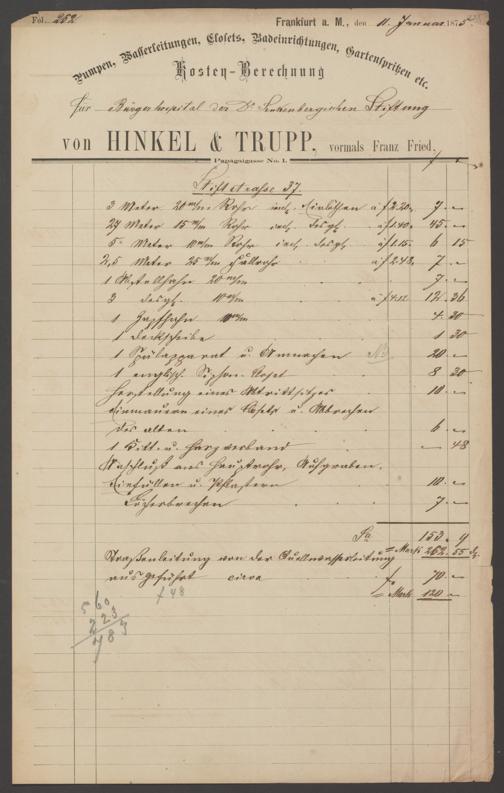 Fol. 252
Frankfurt a. M., den 11. Januar 1875
Pumpen, Wasserleitungen, Closets, Badeinrichtungen, Gartenspritzen etc.
Kosten-Berechnung
für Bürgerhospital der Dr Senkenbergischen Stiftung
von HINKEL & TRUPP, vormals Franz Fried.
Papagaigasse No. 1.
Stiftstrasse 37.
3 Meter 20 m/m Rohr incl. Einlöthen à f 2.20 7 -
27 Meter 15 m/m Rohr incl. desgl. à f 1.40. 45 -
5 Meter 10 m/m Rohr incl. desgl. à f 1.15. 6 15
2,5 Meter 25 m/m à f 2.48. 7 -
1 20 m/m 7 -
3 desgl. 10 m/m à f 4.12 12 36
1 Zapfhahn 10 m/m 4 30
1 1 30
1 Spülapparat u. 20 -
1 englisch. Siphon-Closet 8 30
Herstellung eines Abtrittsitzes 10 -
Einmauern eines Closets u. Abbrechen
des alten 6 -
1 Kitt- u. - 48
Anschluss ans Hauptrohr, Aufgraben,
Einfüllen u. Pflastern 10 -
Löcherbrechen 7 -
Sa 153 9
= Mark 262 55
Straßenleitung von der Quellwasserleitung
ausgeführt circa f 70 -
= Mark 120 -
f 48
560
223
783